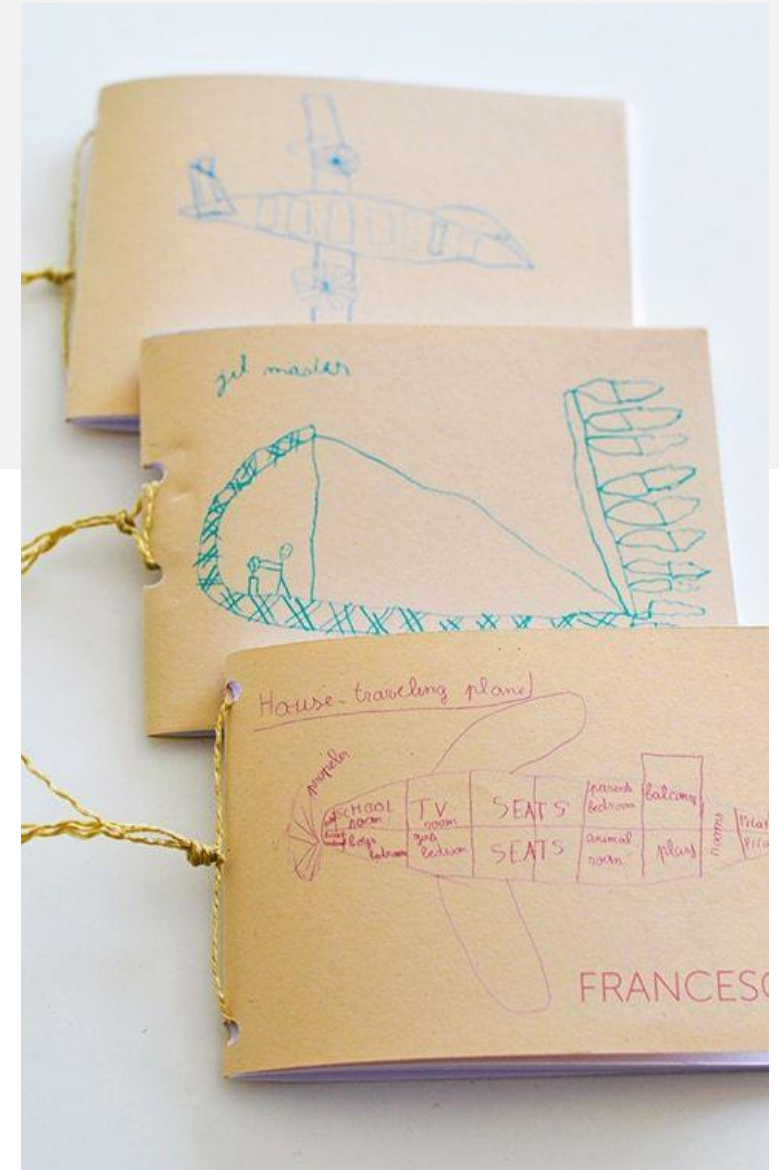 jet master
House-traveling plane
propeler
SCHOOL room
TV room
SEATS
parents bedroom
balcony
boys bedroom
girls bedroom
SEATS
animal room
play
rooms
FRANCESC